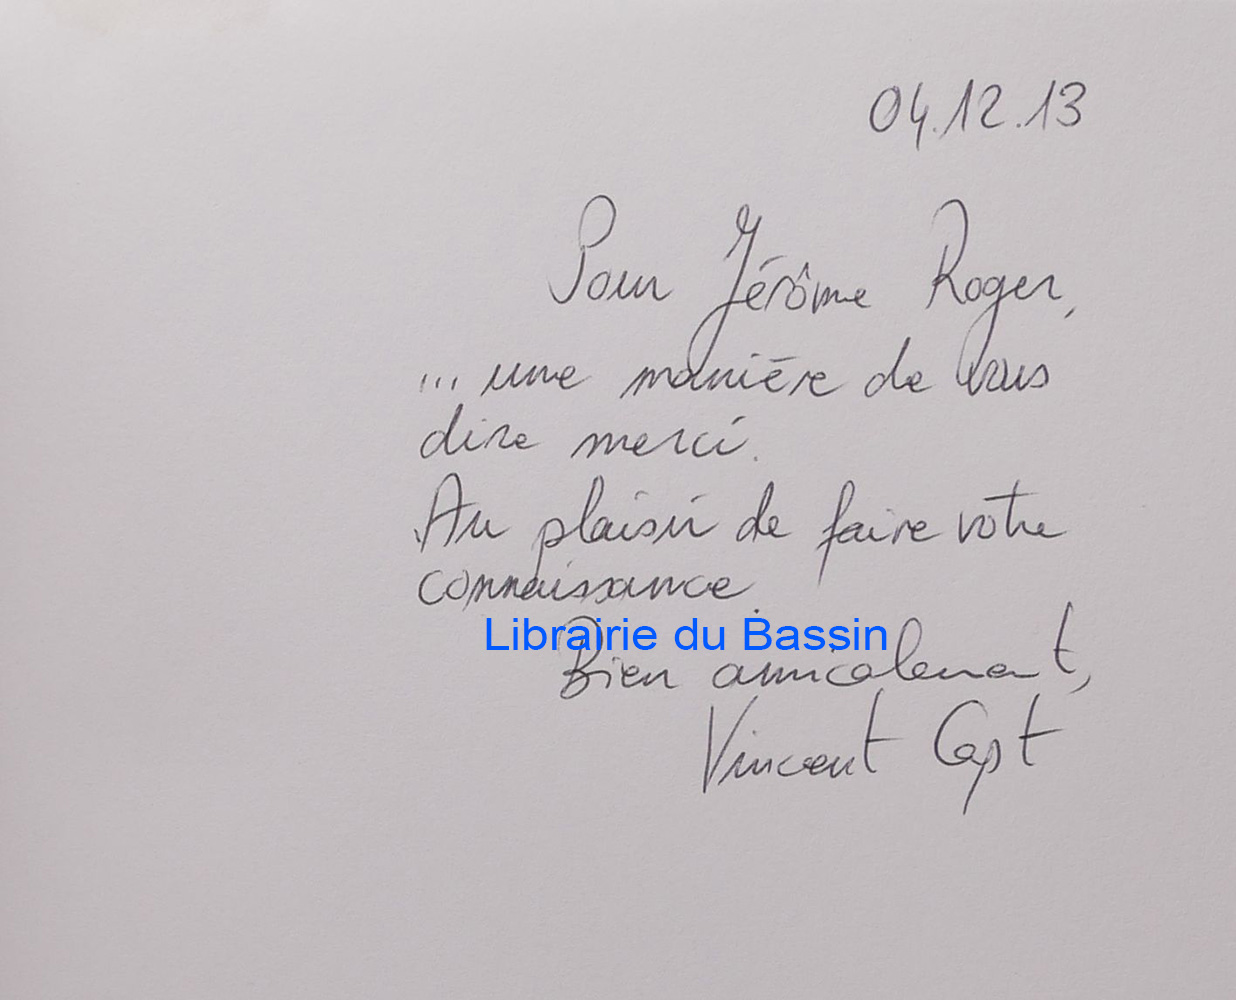 04.12.13
Pour Jérôme Roger,
... une manière de vous
dire merci.
Au plaisir de faire votre
connaissance.
Librairie du Bassin
Bien amicalement,
Vincent Capt